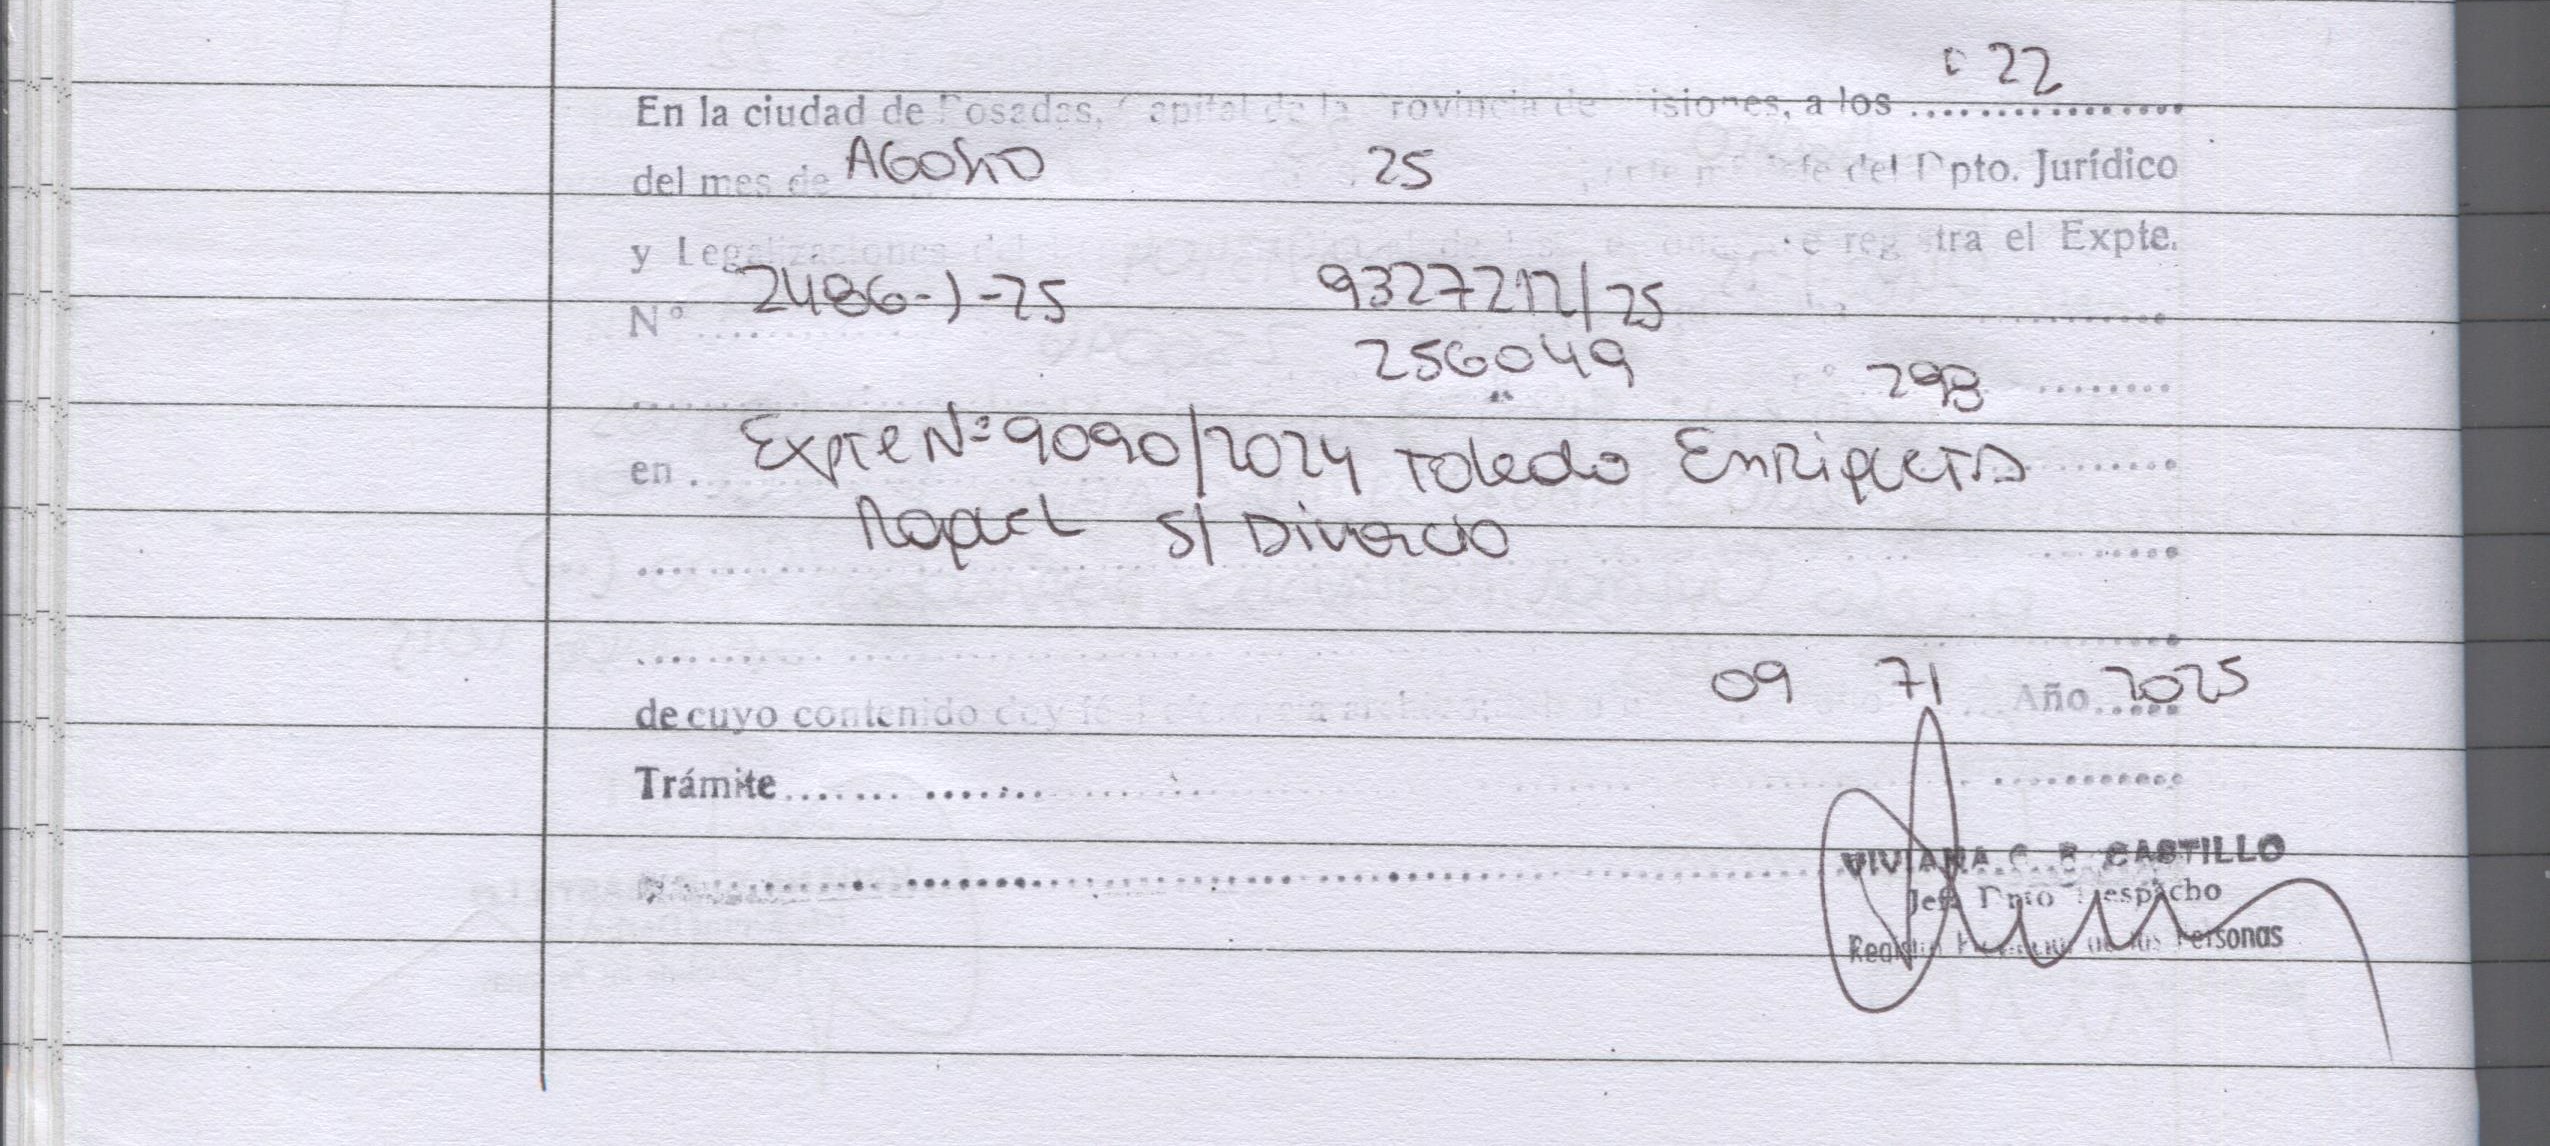 22
En la ciudad de Posadas, Capital de la Provincia de Misiones, a los ...............
del mes de AGOSTO 25 Jefe del Dpto. Jurídico
y Legalizaciones del se registra el Expte.
N° 2486-J-25 9327212/25
256049 298
en Expte Nº 9090/2024 Toledo Enriqueta
Raquel S/ Divorcio
de cuyo contenido doy fé. 09 71 Año 2025
Trámite
VIVIANA C. B. CASTILLO
Jefa Dpto Despacho
Registro Provincial de las Personas